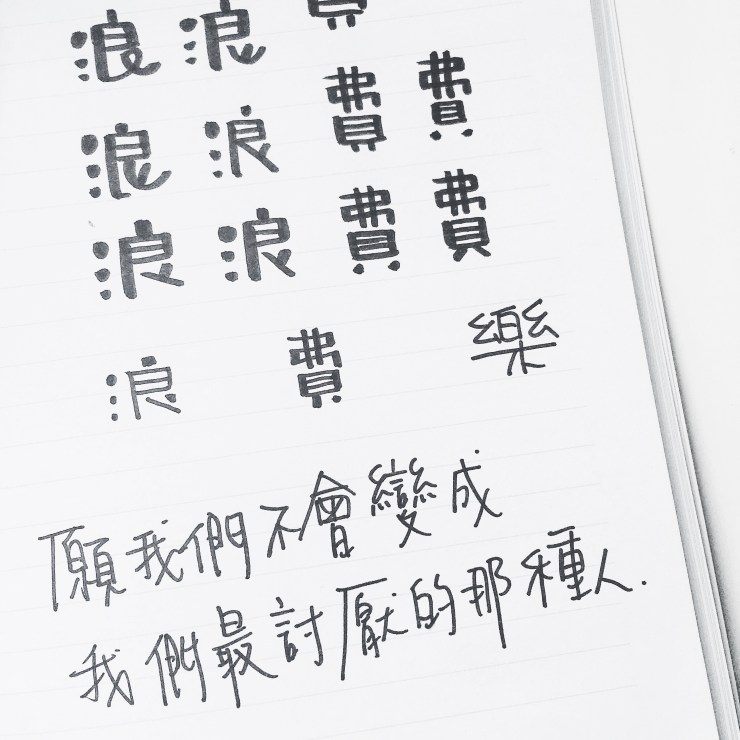 浪 浪 費
浪 浪 費 費
浪 浪 費 費
浪 費 樂
願我們不會變成
我們最討厭的那種人.